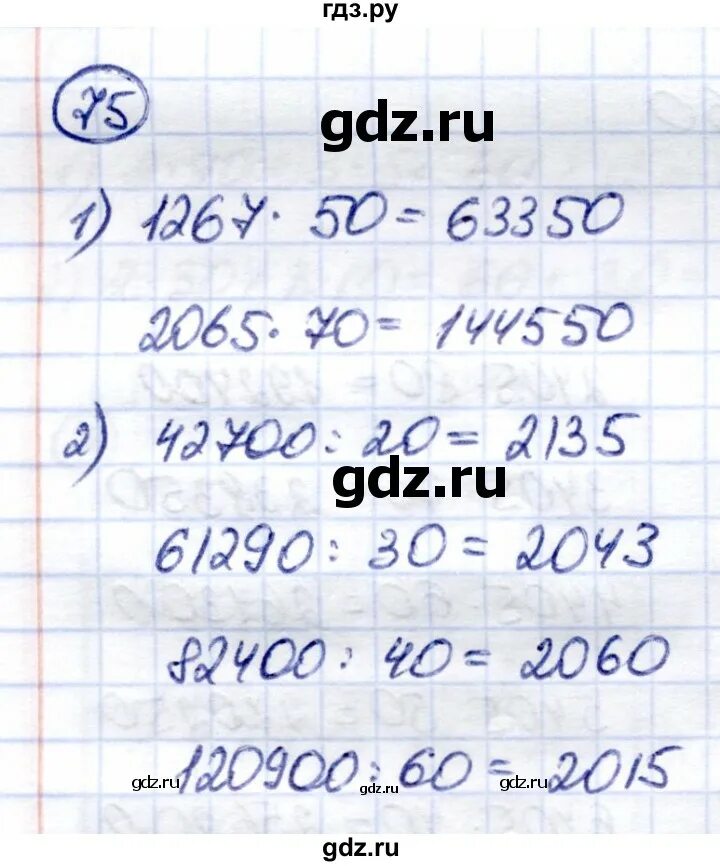 гдз.ру
75
gdz.ru
1) 1267 · 50 = 63350
2065 · 70 = 144550
2) 42700 : 20 = 2135
gdz.ru
61290 : 30 = 2043
82400 : 40 = 2060
120900 : 60 = 2015
gdz.ru
gdz.ru
gdz.ru
gdz.ru